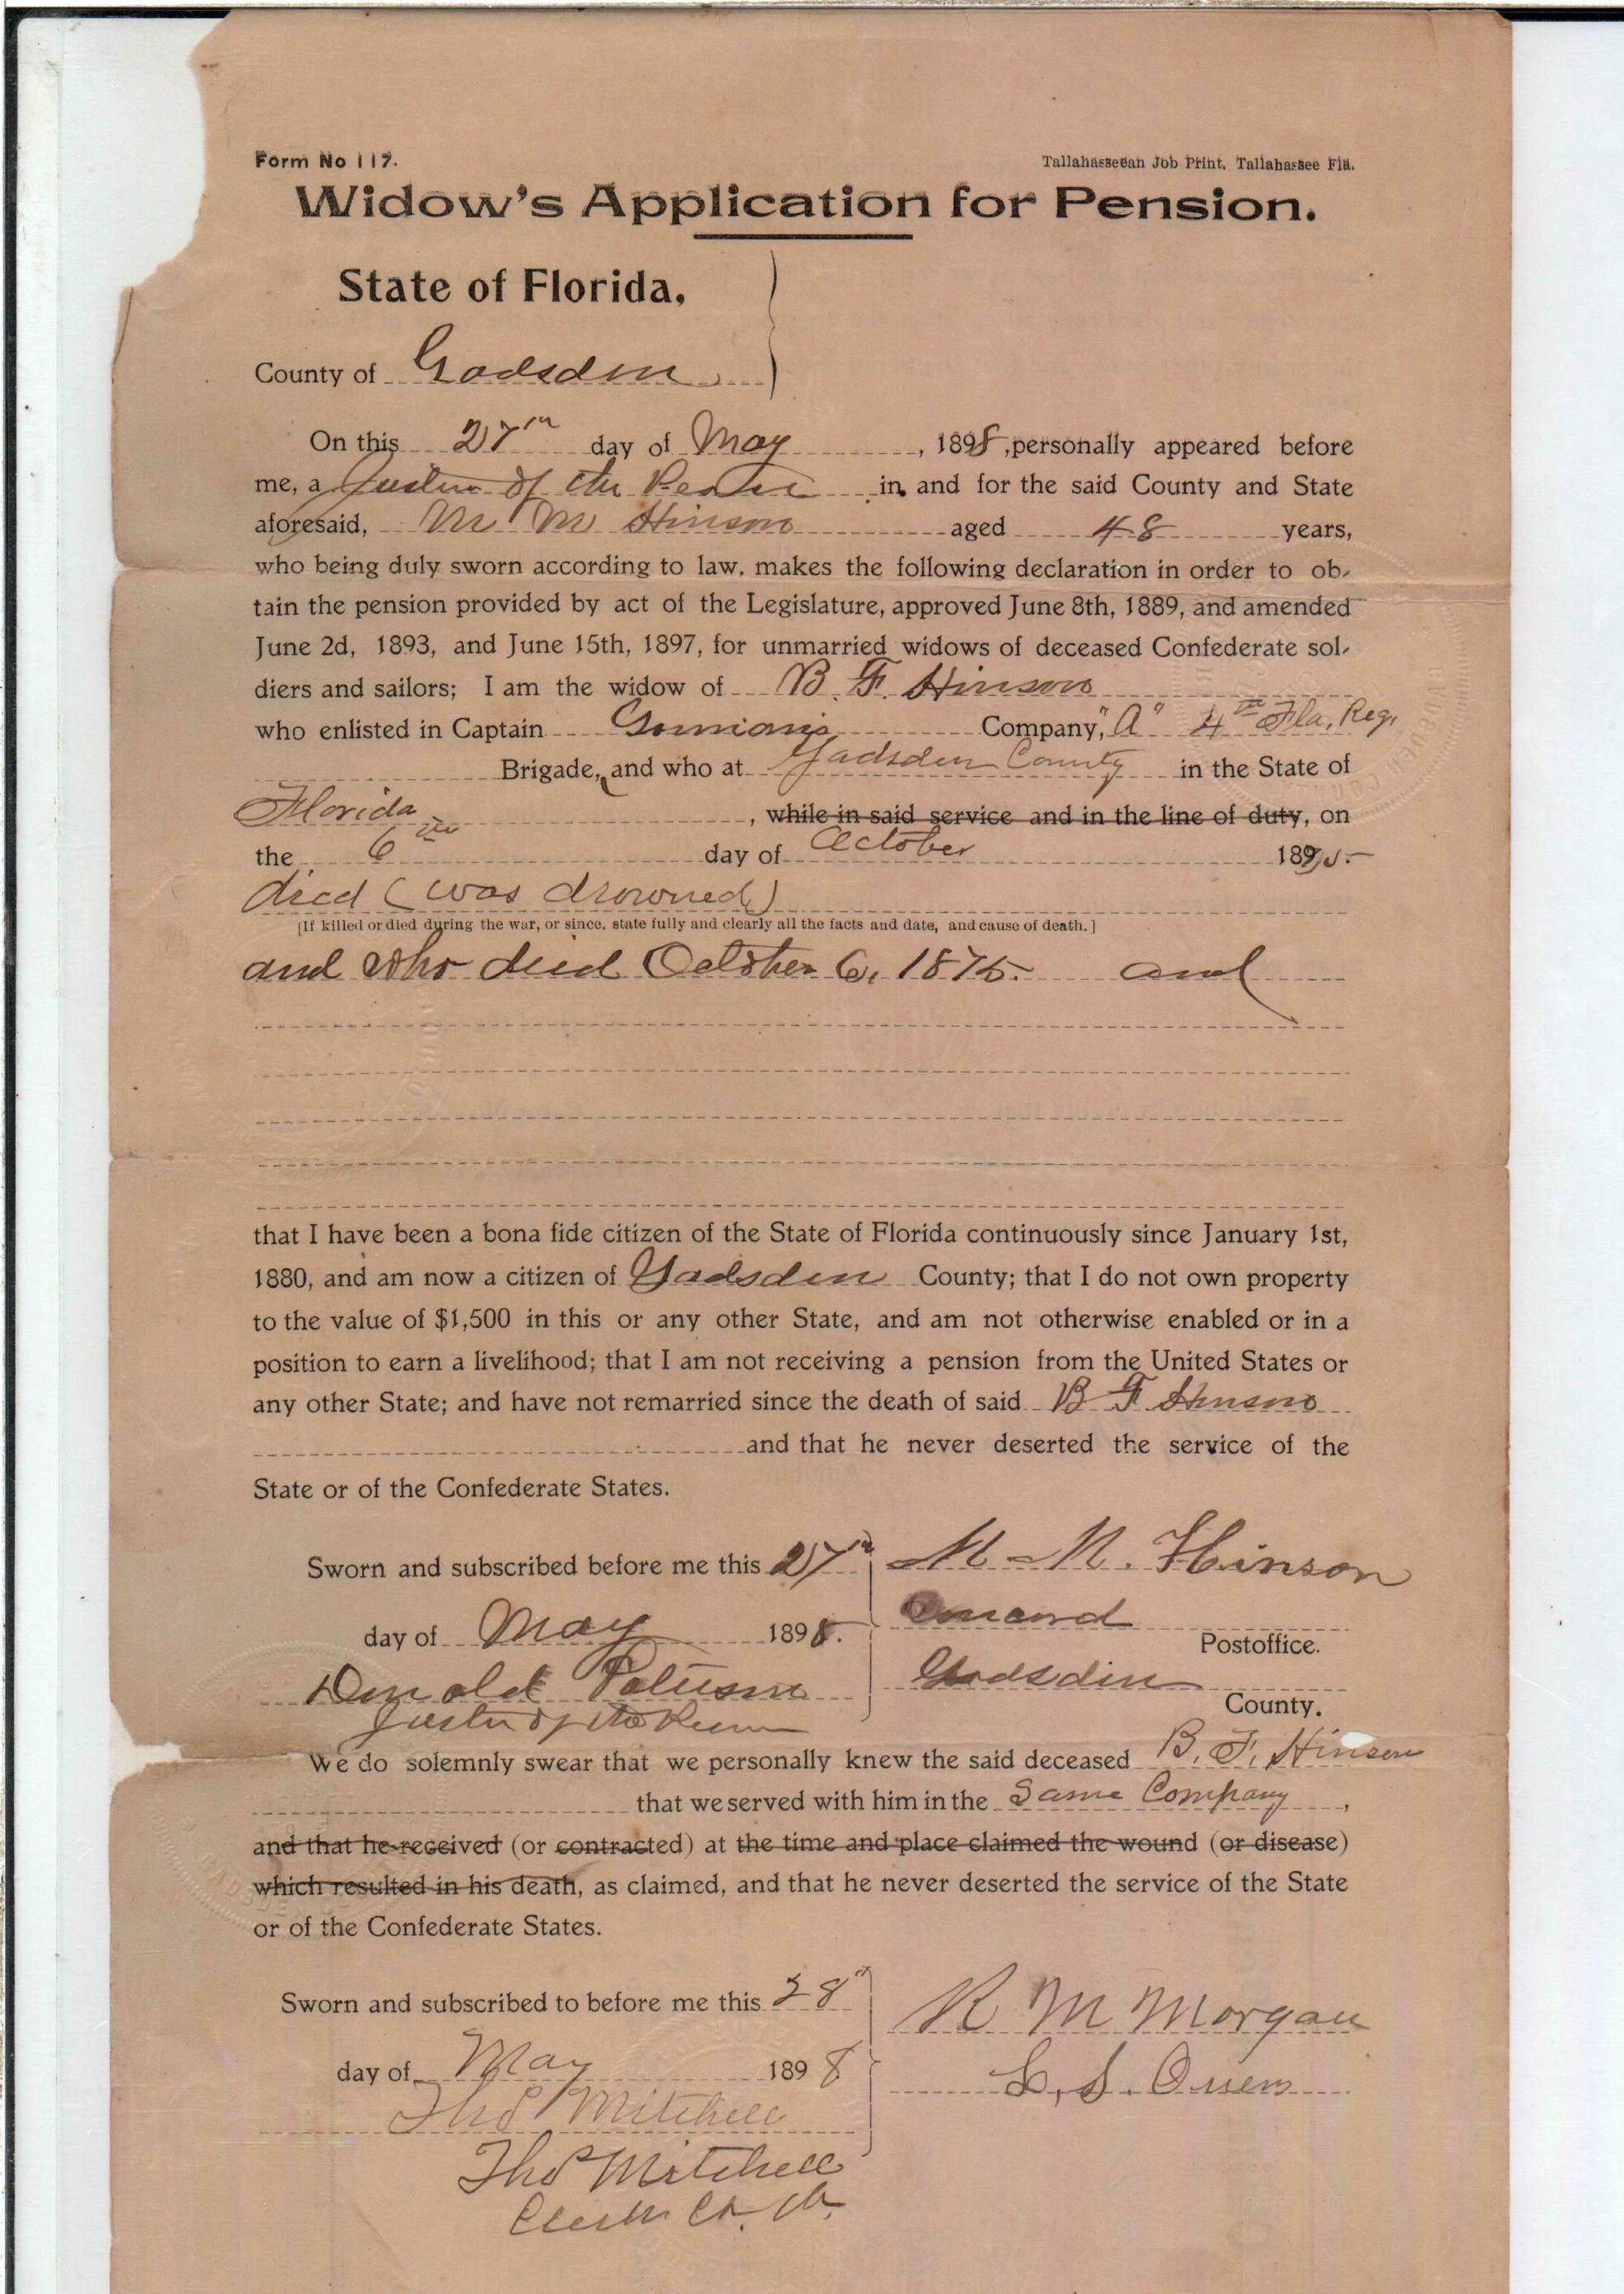 Form No 117.
Tallahasseean Job Print, Tallahassee Fla.
Widow's Application for Pension.
State of Florida,
County of Gadsden
On this 27th day of May, 1898, personally appeared before
me, a Justice of the Peace in and for the said County and State
aforesaid, M M Hinson aged 48 years,
who being duly sworn according to law. makes the following declaration in order to ob-
tain the pension provided by act of the Legislature, approved June 8th, 1889, and amended
June 2d, 1893, and June 15th, 1897, for unmarried widows of deceased Confederate sol-
diers and sailors; I am the widow of B. F. Hinson
who enlisted in Captain Company, "A" 4th Fla. Reg.
Brigade, and who at Gadsden County in the State of
Florida, while in said service and in the line of duty, on
the 6th day of October 1875.
died (was drowned)
[If killed or died during the war, or since, state fully and clearly all the facts and date, and cause of death.]
and who died October 6, 1875. and
that I have been a bona fide citizen of the State of Florida continuously since January 1st,
1880, and am now a citizen of Gadsden County; that I do not own property
to the value of $1,500 in this or any other State, and am not otherwise enabled or in a
position to earn a livelihood; that I am not receiving a pension from the United States or
any other State; and have not remarried since the death of said B F Hinson
and that he never deserted the service of the
State or of the Confederate States.
Sworn and subscribed before me this 27th
M. M. Hinson
day of May 1898.
Concord Postoffice.
Donald
Gadsden County.
Justice of the Peace
We do solemnly swear that we personally knew the said deceased B. F. Hinson
that we served with him in the Same Company,
and that he received (or contracted) at the time and place claimed the wound (or disease)
which resulted in his death, as claimed, and that he never deserted the service of the State
or of the Confederate States.
Sworn and subscribed to before me this 28th
R M Morgan
day of May 1898
L. S. Owens
Thos Mitchell
Thos Mitchell
Clerk Ct. Ct.